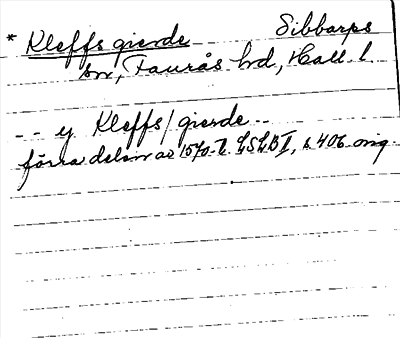 * Kleffs gierde Sibbarps
sn, Faurås hd, Hall. l.
-- ij Kleffs/gierde --
förra delen av 1570-t. LSLB II, s. 406 orig.